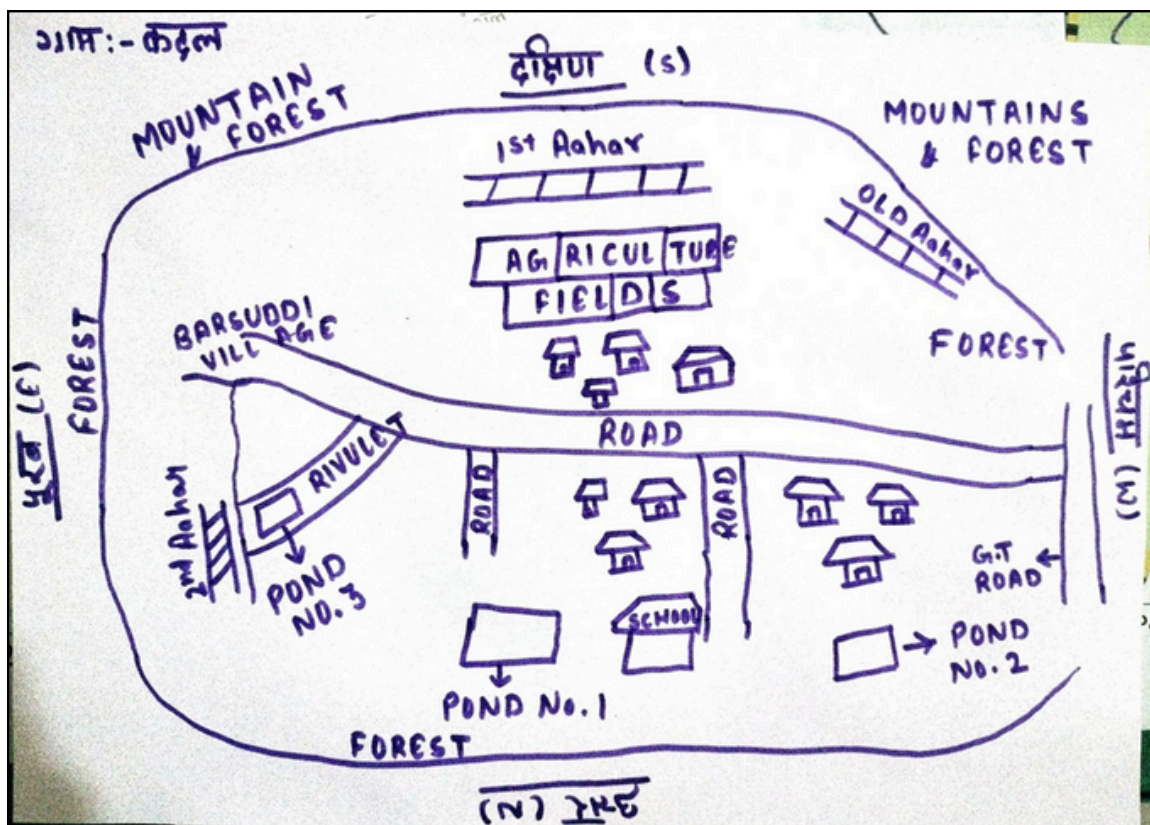 ग्राम:- कदल
दक्षिण (S)
MOUNTAIN
FOREST
MOUNTAINS
& FOREST
1st Aahar
OLD Aahar
AGRICULTURE
FIELDS
BARSUDDI
VILLAGE
FOREST
FOREST
पूरब (E)
पश्चिम (W)
ROAD
RIVULET
ROAD
ROAD
2nd Aahar
POND
NO.3
G.T
ROAD
SCHOOL
POND
No.2
POND No.1
FOREST
उत्तर (N)